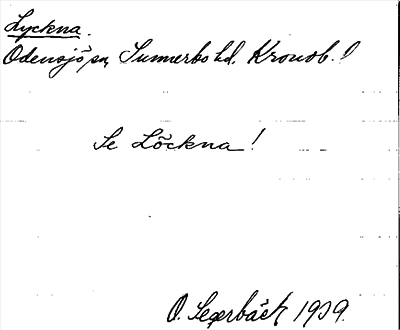 Lyckna.
Odensjö sn, Sunnerbo hd. Kronob. l
Se Löckna!
O. Segerbäck 1929.